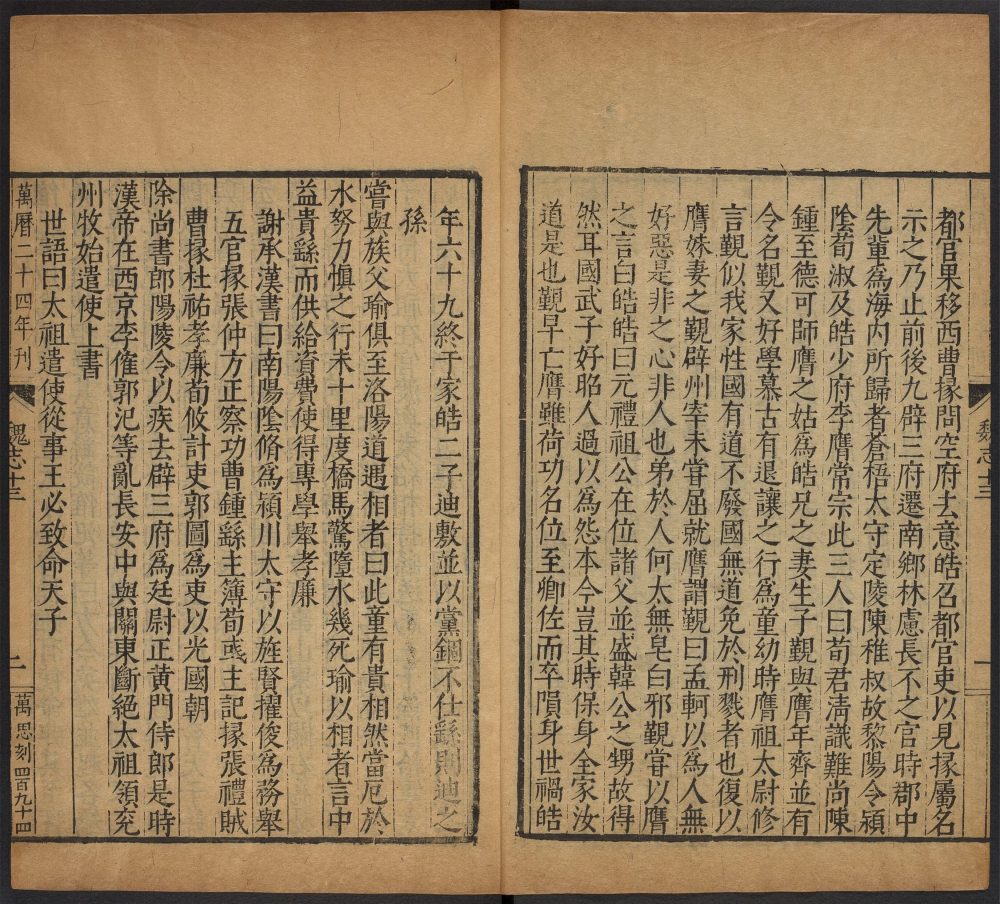 都官果移西曹掾問空府去意皓召都官吏以見掾屬名
示之乃止前後九辟三府遷南鄉林慮長不之官時郡中
先輩爲海內所歸者蒼梧太守定陵陳稚叔故黎陽令潁
陰荀淑及皓少府李膺常宗此三人曰荀君淸識難尚陳
鍾至德可師膺之姑爲皓兄之妻生子覲與膺年齊並有
令名覲又好學慕古有退讓之行爲童幼時膺祖太尉修
言覲似我家性國有道不廢國無道免於刑戮者也復以
膺妹妻之覲辟州宰未甞屈就膺謂覲曰孟軻以爲人無
好惡是非之心非人也弟於人何太無皂白邪覲甞以膺
之言白皓皓曰元禮祖公在位諸父並盛韓公之甥故得
然耳國武子好昭人過以爲怨本今豈其時保身全家汝
道是也覲早亡膺雖荷功名位至卿佐而卒隕身世禍皓
魏志十三
一
年六十九終于家皓二子迪敷並以黨錮不仕繇則迪之
孫
嘗與族父瑜俱至洛陽道遇相者曰此童有貴相然當厄於
水努力愼之行未十里度橋馬驚墮水幾死瑜以相者言中
益貴繇而供給資費使得專學舉孝廉
謝承漢書曰南陽陰脩爲潁川太守以旌賢擢俊爲務舉
五官掾張仲方正察功曹鍾繇主簿荀彧主記掾張禮賊
曹掾杜祐孝廉荀攸計吏郭圖爲吏以光國朝
除尚書郎陽陵令以疾去辟三府爲廷尉正黃門侍郎是時
漢帝在西京李傕郭汜等亂長安中與關東斷絕太祖領兖
州牧始遣使上書
世語曰太祖遣使從事王必致命天子
萬曆二十四年刊
魏志十三
二
萬思刻四百九十四